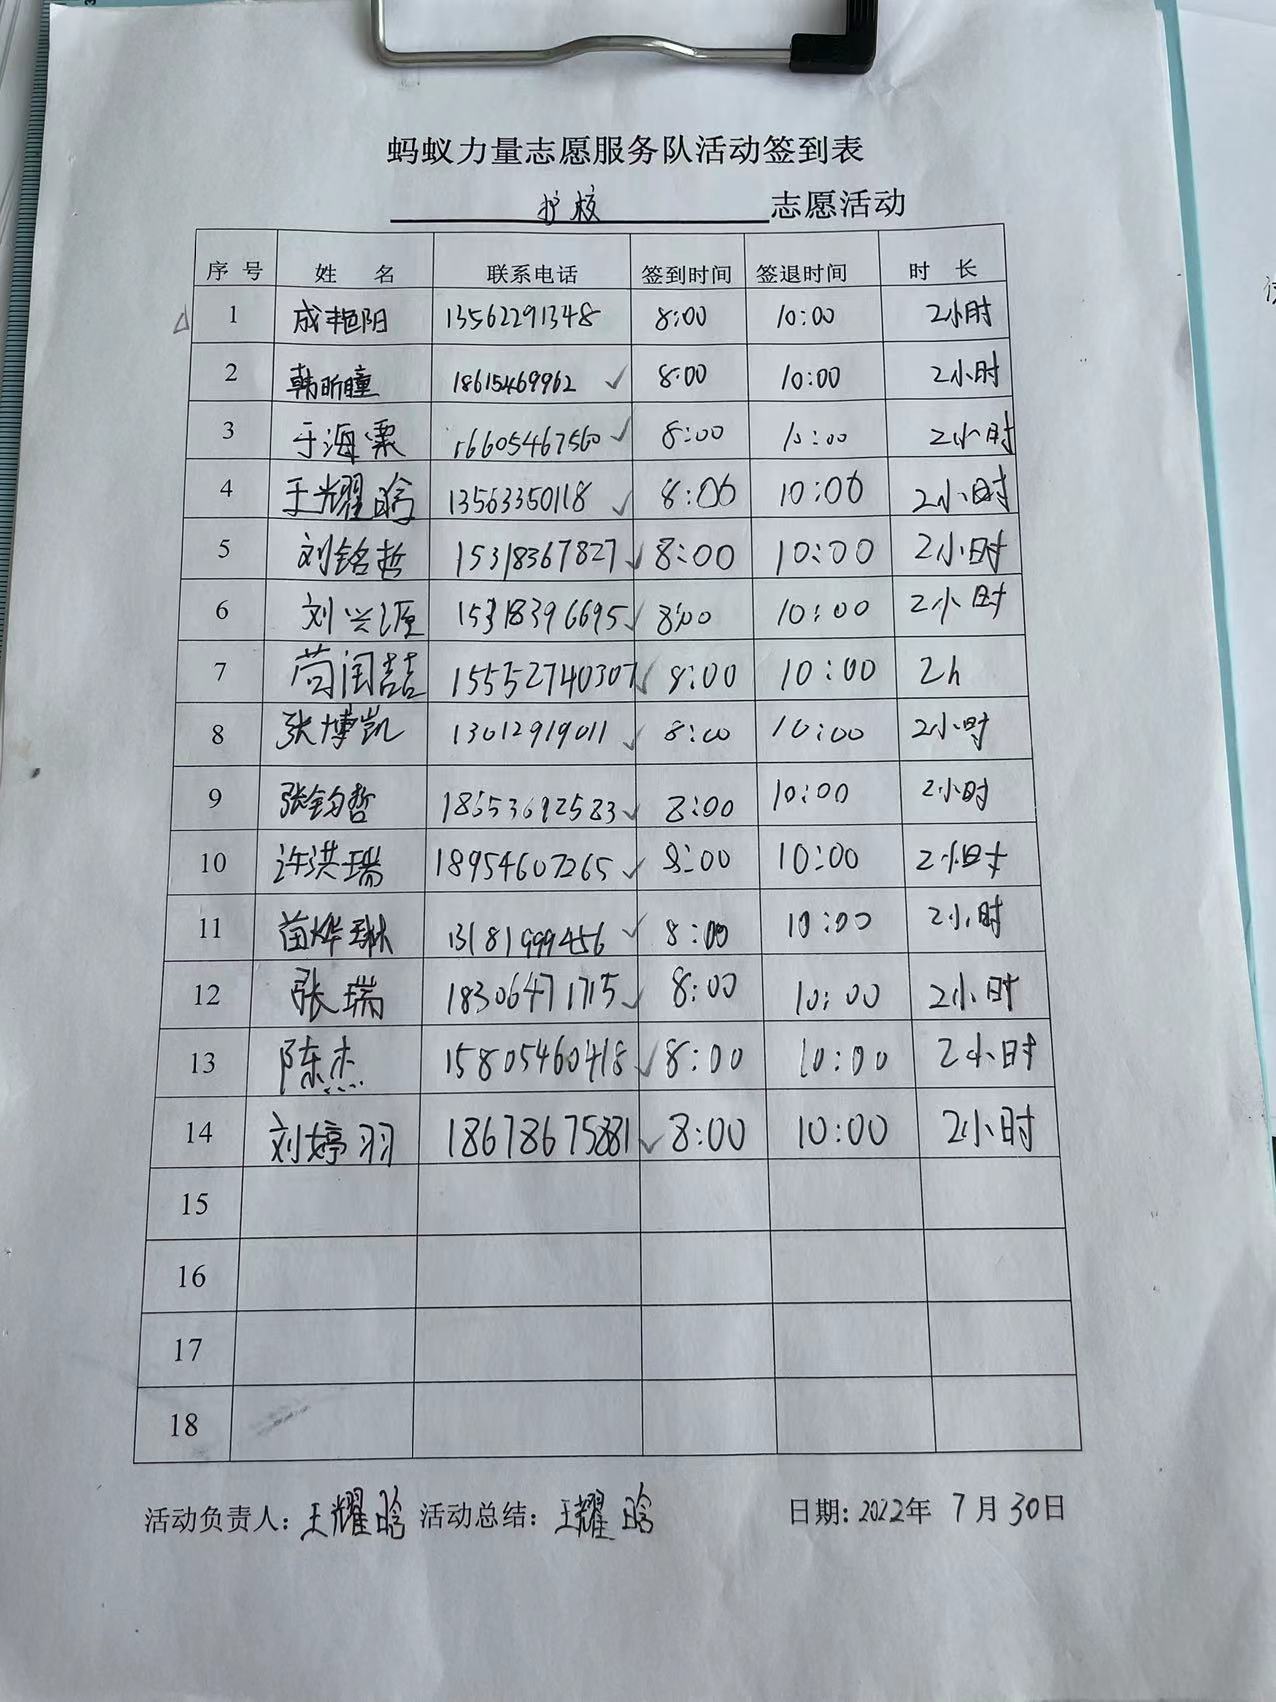 蚂蚁力量志愿服务队活动签到表
护校 志愿活动
序 号 姓 名 联系电话 签到时间 签退时间 时 长
1 成艳阳 13562291348 8:00 10:00 2小时
2 韩昕瞳 18615469962 ✓ 8:00 10:00 2小时
3 于海粟 16605467560 ✓ 8:00 10:00 2小时
4 王耀晗 13563350118 ✓ 8:00 10:00 2小时
5 刘铭哲 15318367827 ✓ 8:00 10:00 2小时
6 刘兴源 15318396695 ✓ 8:00 10:00 2小时
7 苘闰喆 15552740307 ✓ 8:00 10:00 2h
8 张博凯 13012919011 ✓ 8:00 10:00 2小时
9 张钧哲 18653692583 ✓ 8:00 10:00 2小时
10 许洪瑞 18954607265 ✓ 8:00 10:00 2小时
11 苗烨琳 13181999456 ✓ 8:00 10:00 2小时
12 张瑞 18306471715 ✓ 8:00 10:00 2小时
13 陈杰 15805460418 ✓ 8:00 10:00 2小时
14 刘婷羽 18678675881 ✓ 8:00 10:00 2小时
15
16
17
18
活动负责人: 王耀晗 活动总结: 王耀晗 日期: 2022年 7月30日